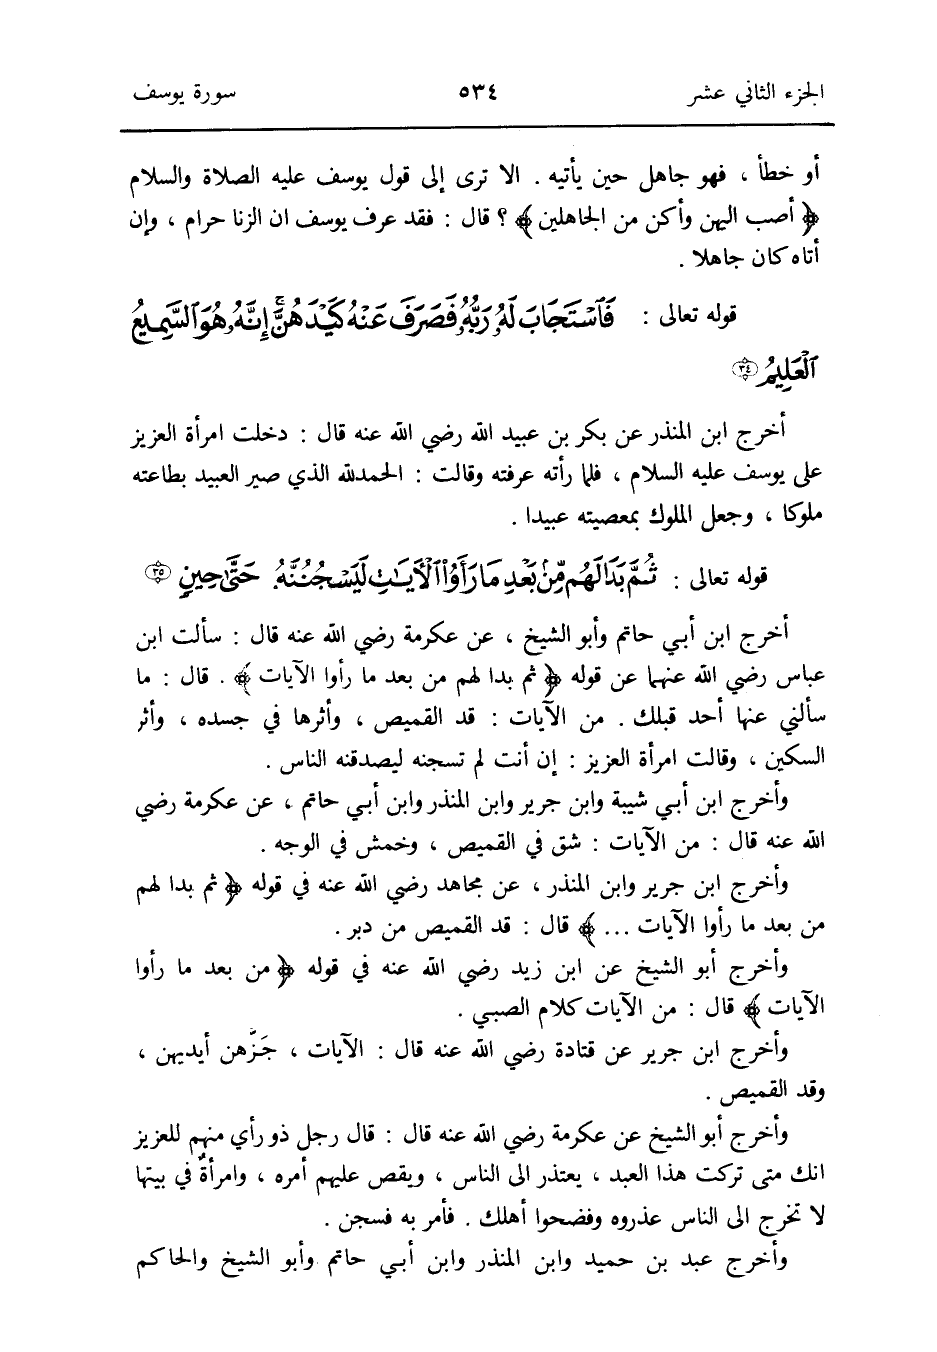 الجزء الثاني عشر ٥٣٤ سورة يوسف
أو خطأ ، فهو جاهل حين يأتيه . الا ترى إلى قول يوسف عليه الصلاة والسلام
﴿ أصب اليهن وأكن من الجاهلين ﴾ ؟ قال : فقد عرف يوسف ان الزنا حرام ، وإن
أتاه كان جاهلا .
قوله تعالى : فَٱسۡتَجَابَ لَهُۥ رَبُّهُۥ فَصَرَفَ عَنۡهُ كَيۡدَهُنَّۚ إِنَّهُۥ هُوَ ٱلسَّمِيعُ
ٱلۡعَلِيمُ ٣٤
أخرج ابن المنذر عن بكر بن عبيد الله رضي الله عنه قال : دخلت امرأة العزيز
على يوسف عليه السلام ، فلما رأته عرفته وقالت : الحمدلله الذي صير العبيد بطاعته
ملوكا ، وجعل الملوك بمعصيته عبيدا .
قوله تعالى : ثُمَّ بَدَا لَهُم مِّنۢ بَعۡدِ مَا رَأَوُاْ ٱلۡأٓيَٰتِ لَيَسۡجُنُنَّهُۥ حَتَّىٰ حِينٖ ٣٥
أخرج ابن أبي حاتم وأبو الشيخ ، عن عكرمة رضي الله عنه قال : سألت ابن
عباس رضي الله عنهما عن قوله ﴿ ثم بدا لهم من بعد ما رأوا الآيات ﴾ . قال : ما
سألني عنها أحد قبلك . من الآيات : قد القميص ، وأثرها في جسده ، وأثر
السكين ، وقالت امرأة العزيز : إن أنت لم تسجنه ليصدقنه الناس .
وأخرج ابن أبي شيبة وابن جرير وابن المنذر وابن أبي حاتم ، عن عكرمة رضي
الله عنه قال : من الآيات : شق في القميص ، وخمش في الوجه .
وأخرج ابن جرير وابن المنذر ، عن مجاهد رضي الله عنه في قوله ﴿ ثم بدا لهم
من بعد ما رأوا الآيات ... ﴾ قال : قد القميص من دبر .
وأخرج أبو الشيخ عن ابن زيد رضي الله عنه في قوله ﴿ من بعد ما رأوا
الآيات ﴾ قال : من الآيات كلام الصبي .
وأخرج ابن جرير عن قتادة رضي الله عنه قال : الآيات ، جَزَّهن أيديهن ،
وقد القميص .
وأخرج أبو الشيخ عن عكرمة رضي الله عنه قال : قال رجل ذو رأي منهم للعزيز
انك متى تركت هذا العبد ، يعتذر الى الناس ، ويقص عليهم أمره ، وامرأةٌ في بيتها
لا تخرج الى الناس عذروه وفضحوا أهلك . فأمر به فسجن .
وأخرج عبد بن حميد وابن المنذر وابن أبي حاتم وأبو الشيخ والحاكم